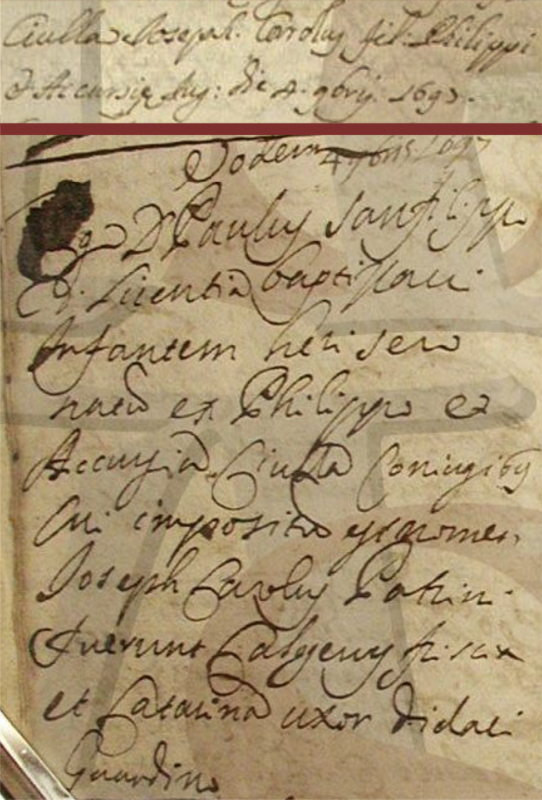 Ciulla Joseph: Carolus fil: Philippi
& Accursiæ Iug: die 4. 9bris: 1697.
Eodem 4 9bris 1697
Ego Dr Paulus Sanfilippo
d: licentia baptizavi
Infantem heri sero
natu ex Philippo et
Accursia Ciulla coniugibus
Cui impositu est nomen
Joseph Carolus Patrini
fuerunt Calgerus
et Catarina uxor Didaci
Guardino